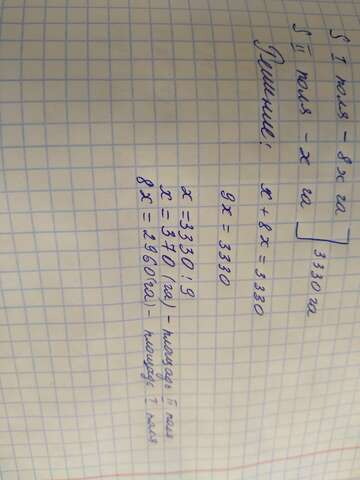 S I поля - 8x га
S II поля - x га ] 3330 га
Решение: x + 8x = 3330
9x = 3330
x = 3330 : 9
x = 370 (га) - площадь II поля
8x = 2960 (га) - площадь I поля